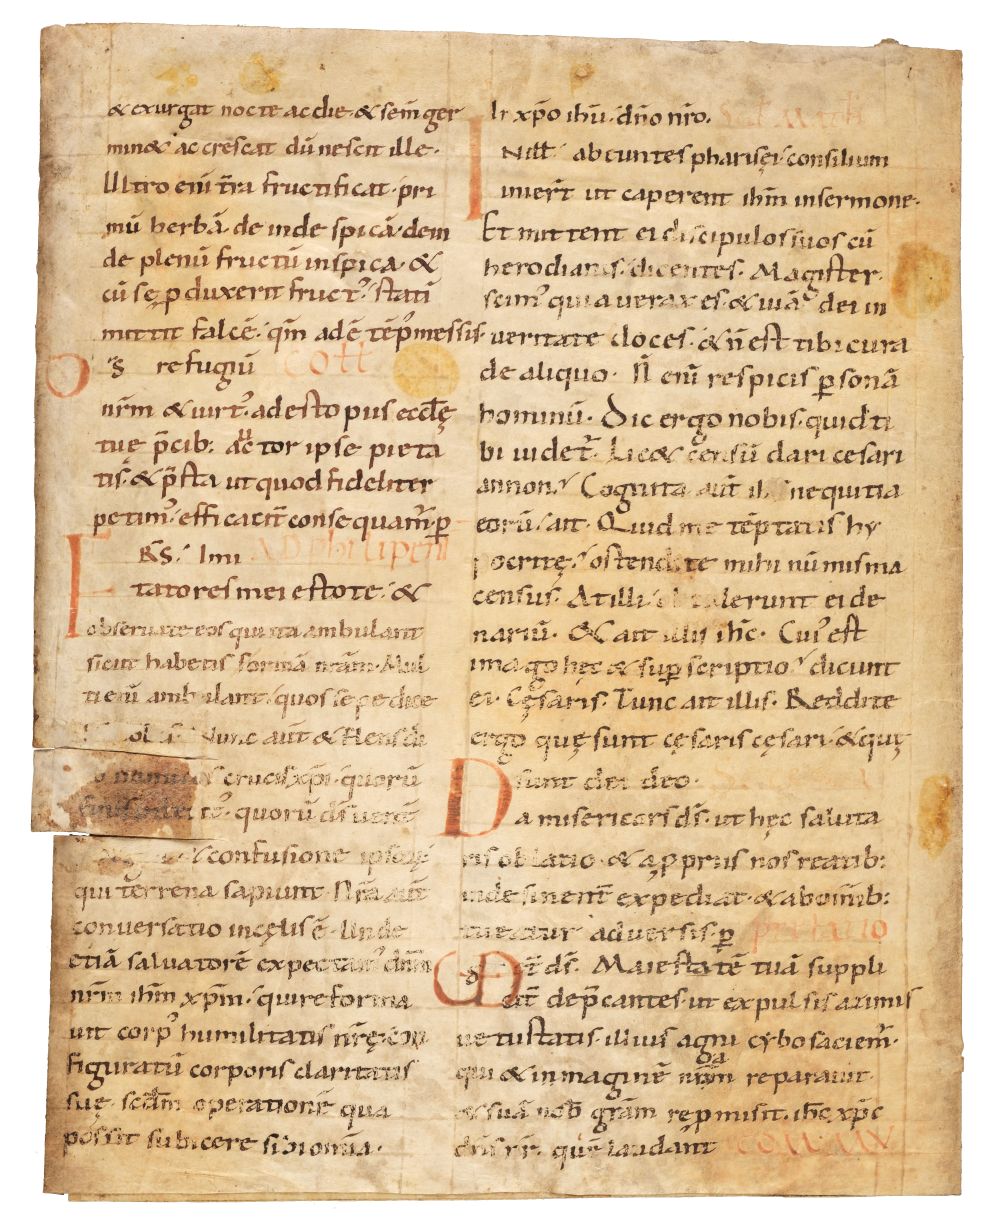 & exurgat nocte ac die· & sem̄ ger
min& ac crescat dū nescit ille·
Ultro eni t̄ra fructificat· pri
mū herbā· de inde spicā· dein
de plenū fructū in spica· &
cū sę ꝓduxerit fruct᾽· stati
mittit falcē· qm̄ adē tēp᾽ messis·
Ds refugiū COLL
nr̄m & uirt᾽· adesto pus eccl̄ę
tuę p̄cib: auctor ipse pieta
tis· & p̄sta ut quod fideliter
petim᾽· efficacit̄ consequam᾽· ꝑ
FRS· Imi AD philipens
tatores mei estote· &
observate eos qui ita ambulant
sicut habetis formā nr̄am· Mul
ti eni ambulant· quos sępe dice
Nunc aūt & flens di
crucis xp̄i· quorū
quorū ds̄ uent̄
& confusione ipsorū
qui terrena sapiunt· Nr̄a aūt
conversatio in cęlis ē· Unde
etiā salvatorē expectam᾽ dn̄m
nr̄m ihm̄ xp̄m· qui reforma
uit corp᾽ humilitatis nr̄ę· con
figuratū corporis claritatis
suę· scd̄m operationē qua
possit subicere sibi om̄ia·
Ir xp̄o ihū· dn̄o nr̄o· Sec Math
IN ill̄· abeuntes pharisęi· consilium
inier̄t ut caperent ihm̄ in sermone·
Et mittent ei discipulos suos cū
herodianis· dicentes· Magister·
scim᾽ quia uerax es· & uiā dei in
veritate doces· & n̄ est tibi cura
de aliquo· N̄ eni respicis ꝑsonā
hominū· Dic ergo nobis· quid ti
bi uidet᾽· Lic& censū dari cesari
annon· Cognita aūt ihc̄ nequitia
eorū· ait· Quid me tēptatis hy
pocritę· ostendite mihi nūmisma
census· At illi obtulerunt ei de
nariū· & ait illis ihc̄· Cui᾽ est
imago hęc & suꝑscriptio· dicunt
ei· Cęsaris· Tunc ait illis· Reddite
ergo quę sunt cęsaris cęsari· & quę
sunt dei deo·
Da misericors ds̄· ut hęc saluta
ris oblatio· & a ꝓpriis nos reatib:
inde sinent̄ expediat· & ab omīb:
tueatur adversis· ꝑ prefatio
et̄ ds̄· Maiestatē tuā suppli
cit̄ dep̄cantes· ut expulsis azimis
uetustatis· illius agni cybo saciem᾽·
qui & in maginē nr̄am reparauit·
& suā nob̄ gr̄am reꝓmisit· ihc̄ xp̄c
dn̄s nr̄· quē laudant COM̄UN